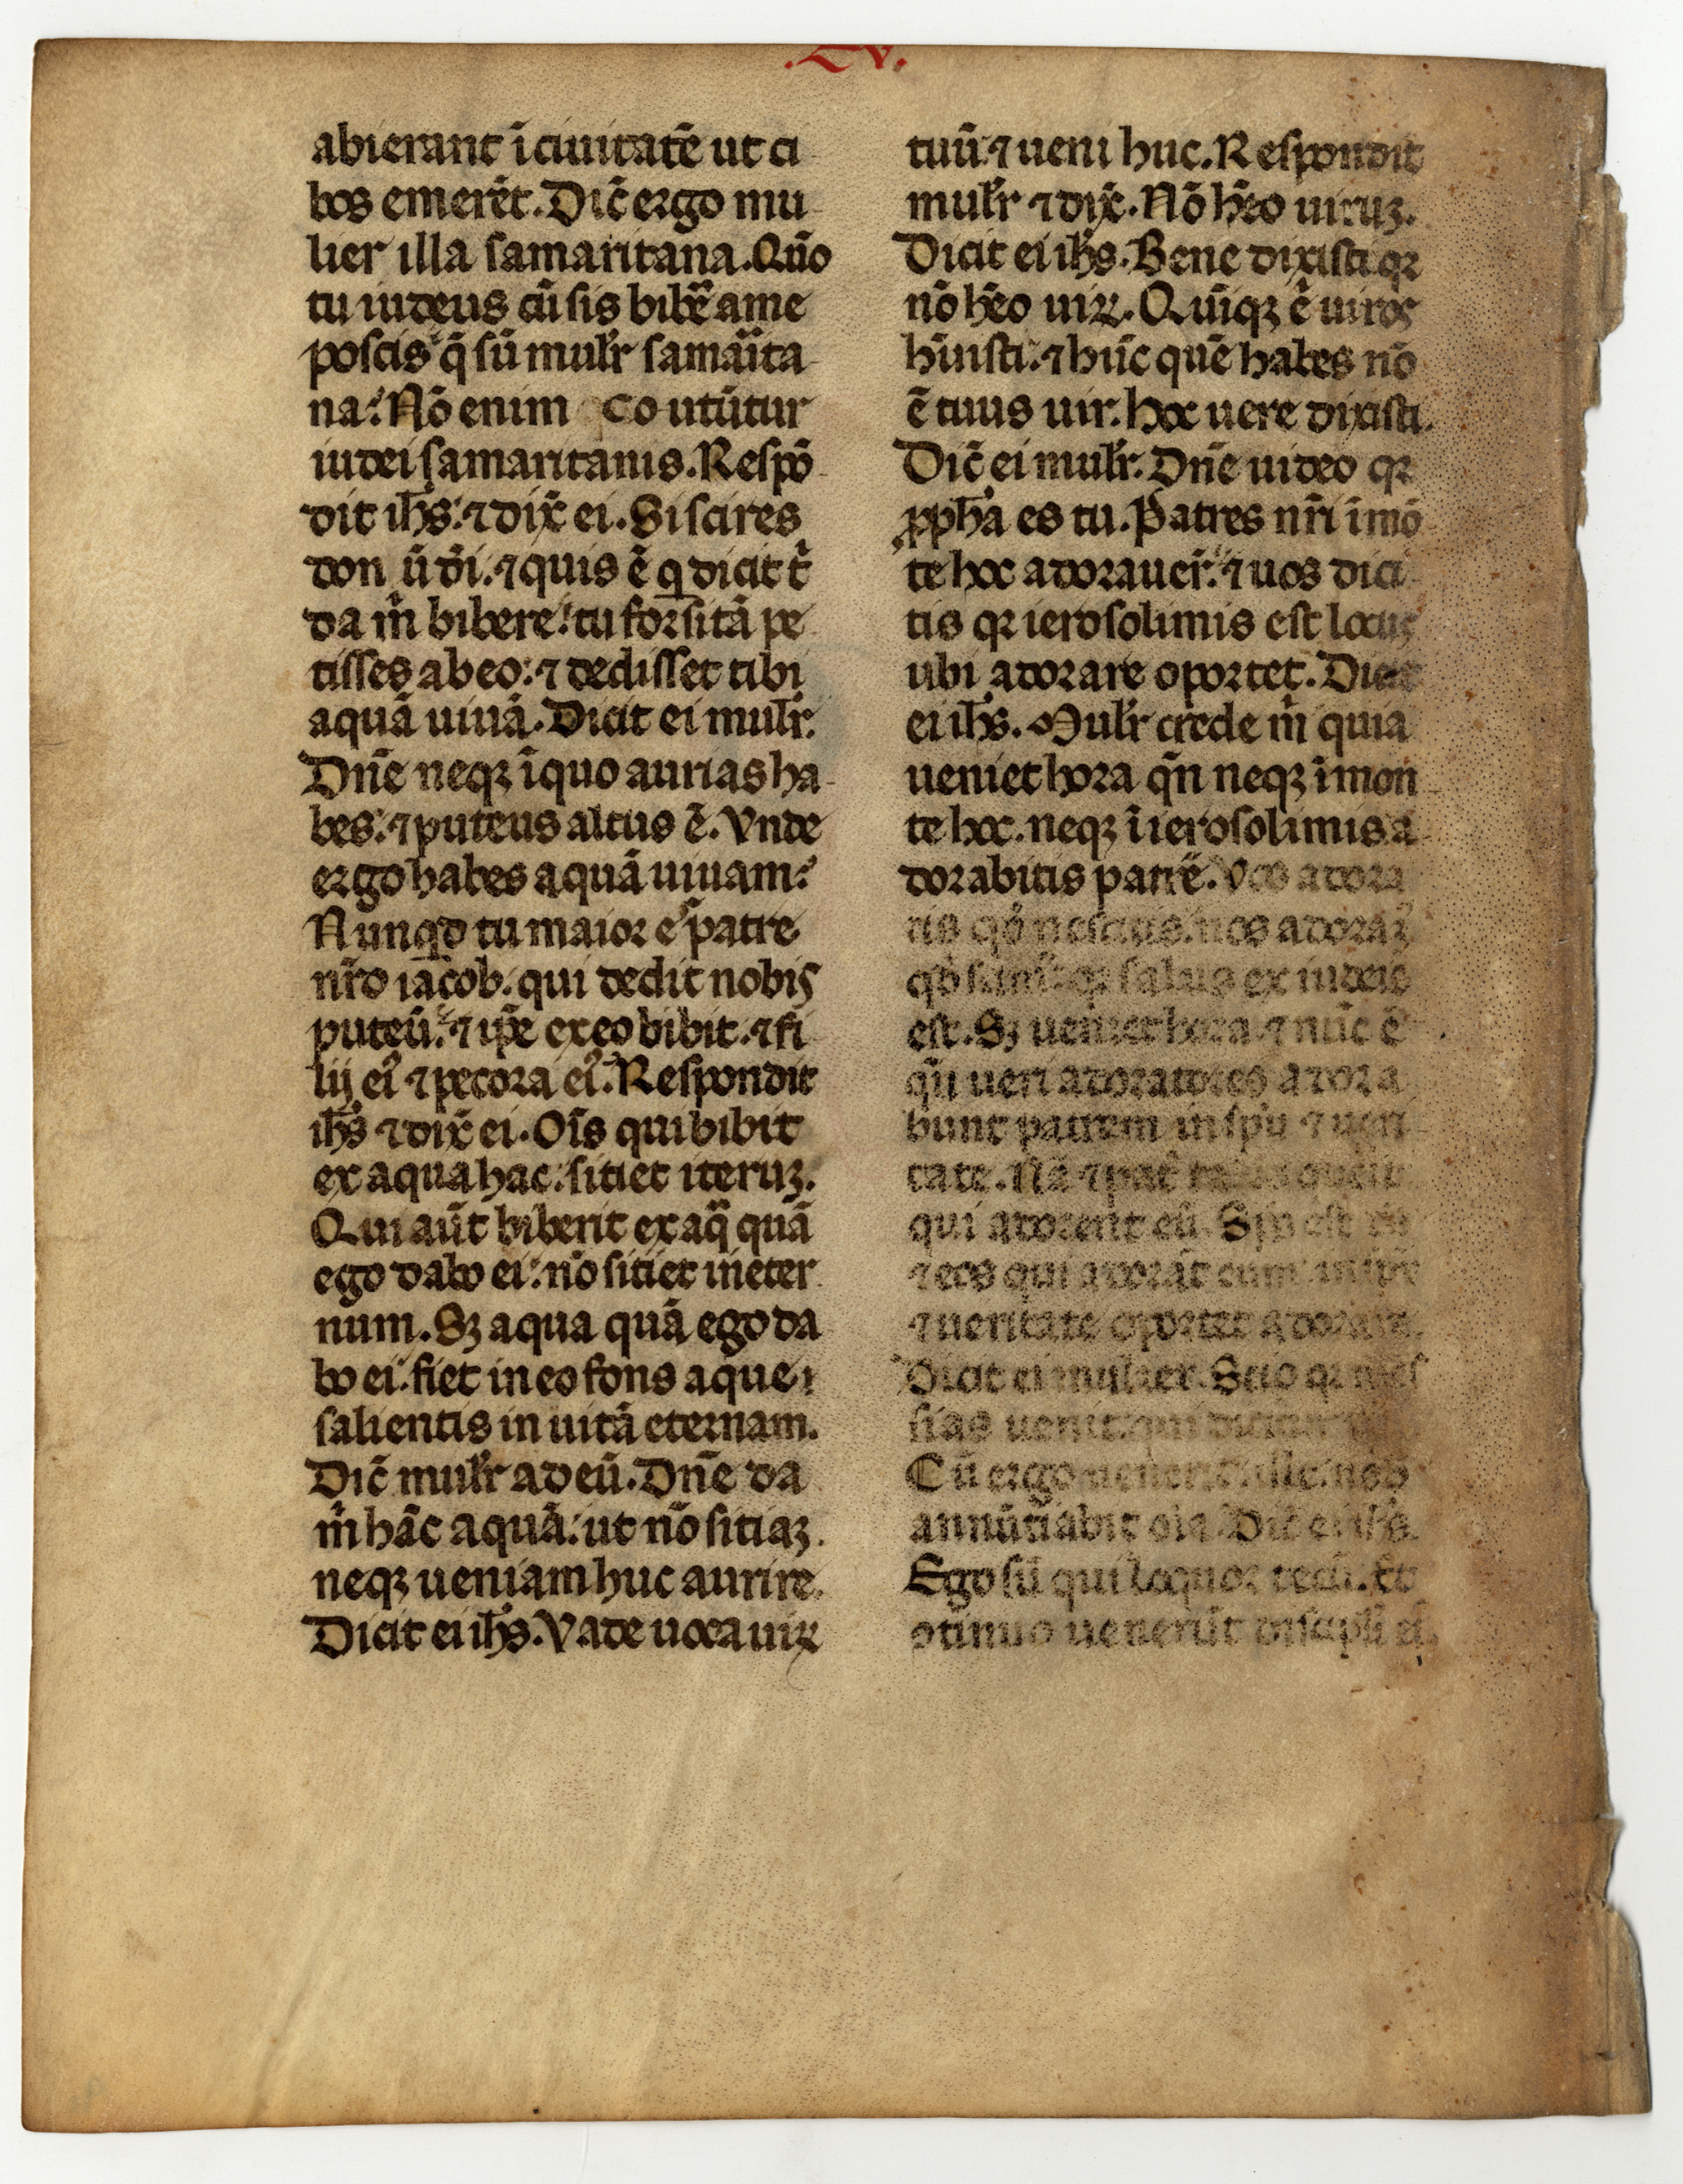 .Lv.
abierant ī ciuitatē ut ci
bos emerēt. Dic̄ ergo mu
lier illa samaritana. Quō
tu iudeus cū sis bibe᷑ a me
poscis q̄ sū mul̄r samarita
na: Nō enim co utūtur
iudei samaritanis. Respō
dit ih̄s: ⁊ dix̄ ei. Si scires
don ū dī. ⁊ quis ē q̣ dicit t̄
da m̄ bibere: tu forsitā pe
tisses ab eo: ⁊ dedisset tibi
aquā uiuā. Dicit ei mul̄r.
Dn̄e neqꝫ ī quo aurias ha
bes: ⁊ puteus altus ē. Vnde
ergo habes aquā uiuam:
Nunqd tu maior e᷑ patre
nr̄o iacob. qui dedit nobis
puteū. ⁊ ip̄e ex eo bibit. ⁊ fi
lij ei᷒ ⁊ pecora ei᷒. Respondit
ih̄s ⁊ dix̄ ei. Oīs qui bibit
ex aqua hac: sitiet iteruꝫ.
Qui aūt biberit ex aq̄ quā
ego dabo ei: nō sitiet in eter
num. Sꝫ aqua quā ego da
bo ei: fiet in eo fons aque
salientis in uitā eternam.
Dic̄ mul̄r ad eū. Dn̄e da
m̄ hāc aquā: ut nō sitiaꝫ.
neqꝫ ueniam huc aurire.
Dicit ei ih̄s. Vade uoca uiꝝ
tuū: ⁊ ueni huc. Respondit
mul̄r ⁊ dix̄. Nō h̄eo uiruꝫ.
Dicit ei ih̄s. Bene dixisti qꝛ
nō h̄eo uiꝝ. Quīqꝫ ē uiros
h̄uisti: ⁊ hūc quē habes nō
ē tuus uir. hoc uere dixisti.
Dic̄ ei mul̄r. Dn̄e uideo qꝛ
ꝓph̄a es tu. Patres nr̄i ī mō
te hoc adorauer̄. ⁊ uos dici
tis qꝛ ierosolimis est locus
ubi adorare oportet. Dicit
ei ih̄s. Mul̄r crede m̄ quia
ueniet hora qn̄ neqꝫ ī mon
te hoc. neqꝫ ī ierosolimis a
dorabitis patrē. Vos adora
tis qd̄ nescitis. nos adoraꝫ
qd̄ qꝛ salus ex iudeis
est. Sꝫ ueniet hora ⁊ nūc ē
qn̄ ueri adoratores adora
bunt patrem in sp̄u ⁊ ueri
tate. Nā ⁊ pat̄
qui adorent eū. est
⁊ eos qui adorāt eum in
⁊ ueritate oportet adorare.
Dicit ei mulier. Scio qꝛ mes
sias uenit: qui
Cū ergo uenerit ille: nob̄
annūtiabit oīa. Dic̄ ei ih̄s.
Ego sū qui loquor tecū. Et
ꝯtinuo uenerūt discipl̄i ei᷒.